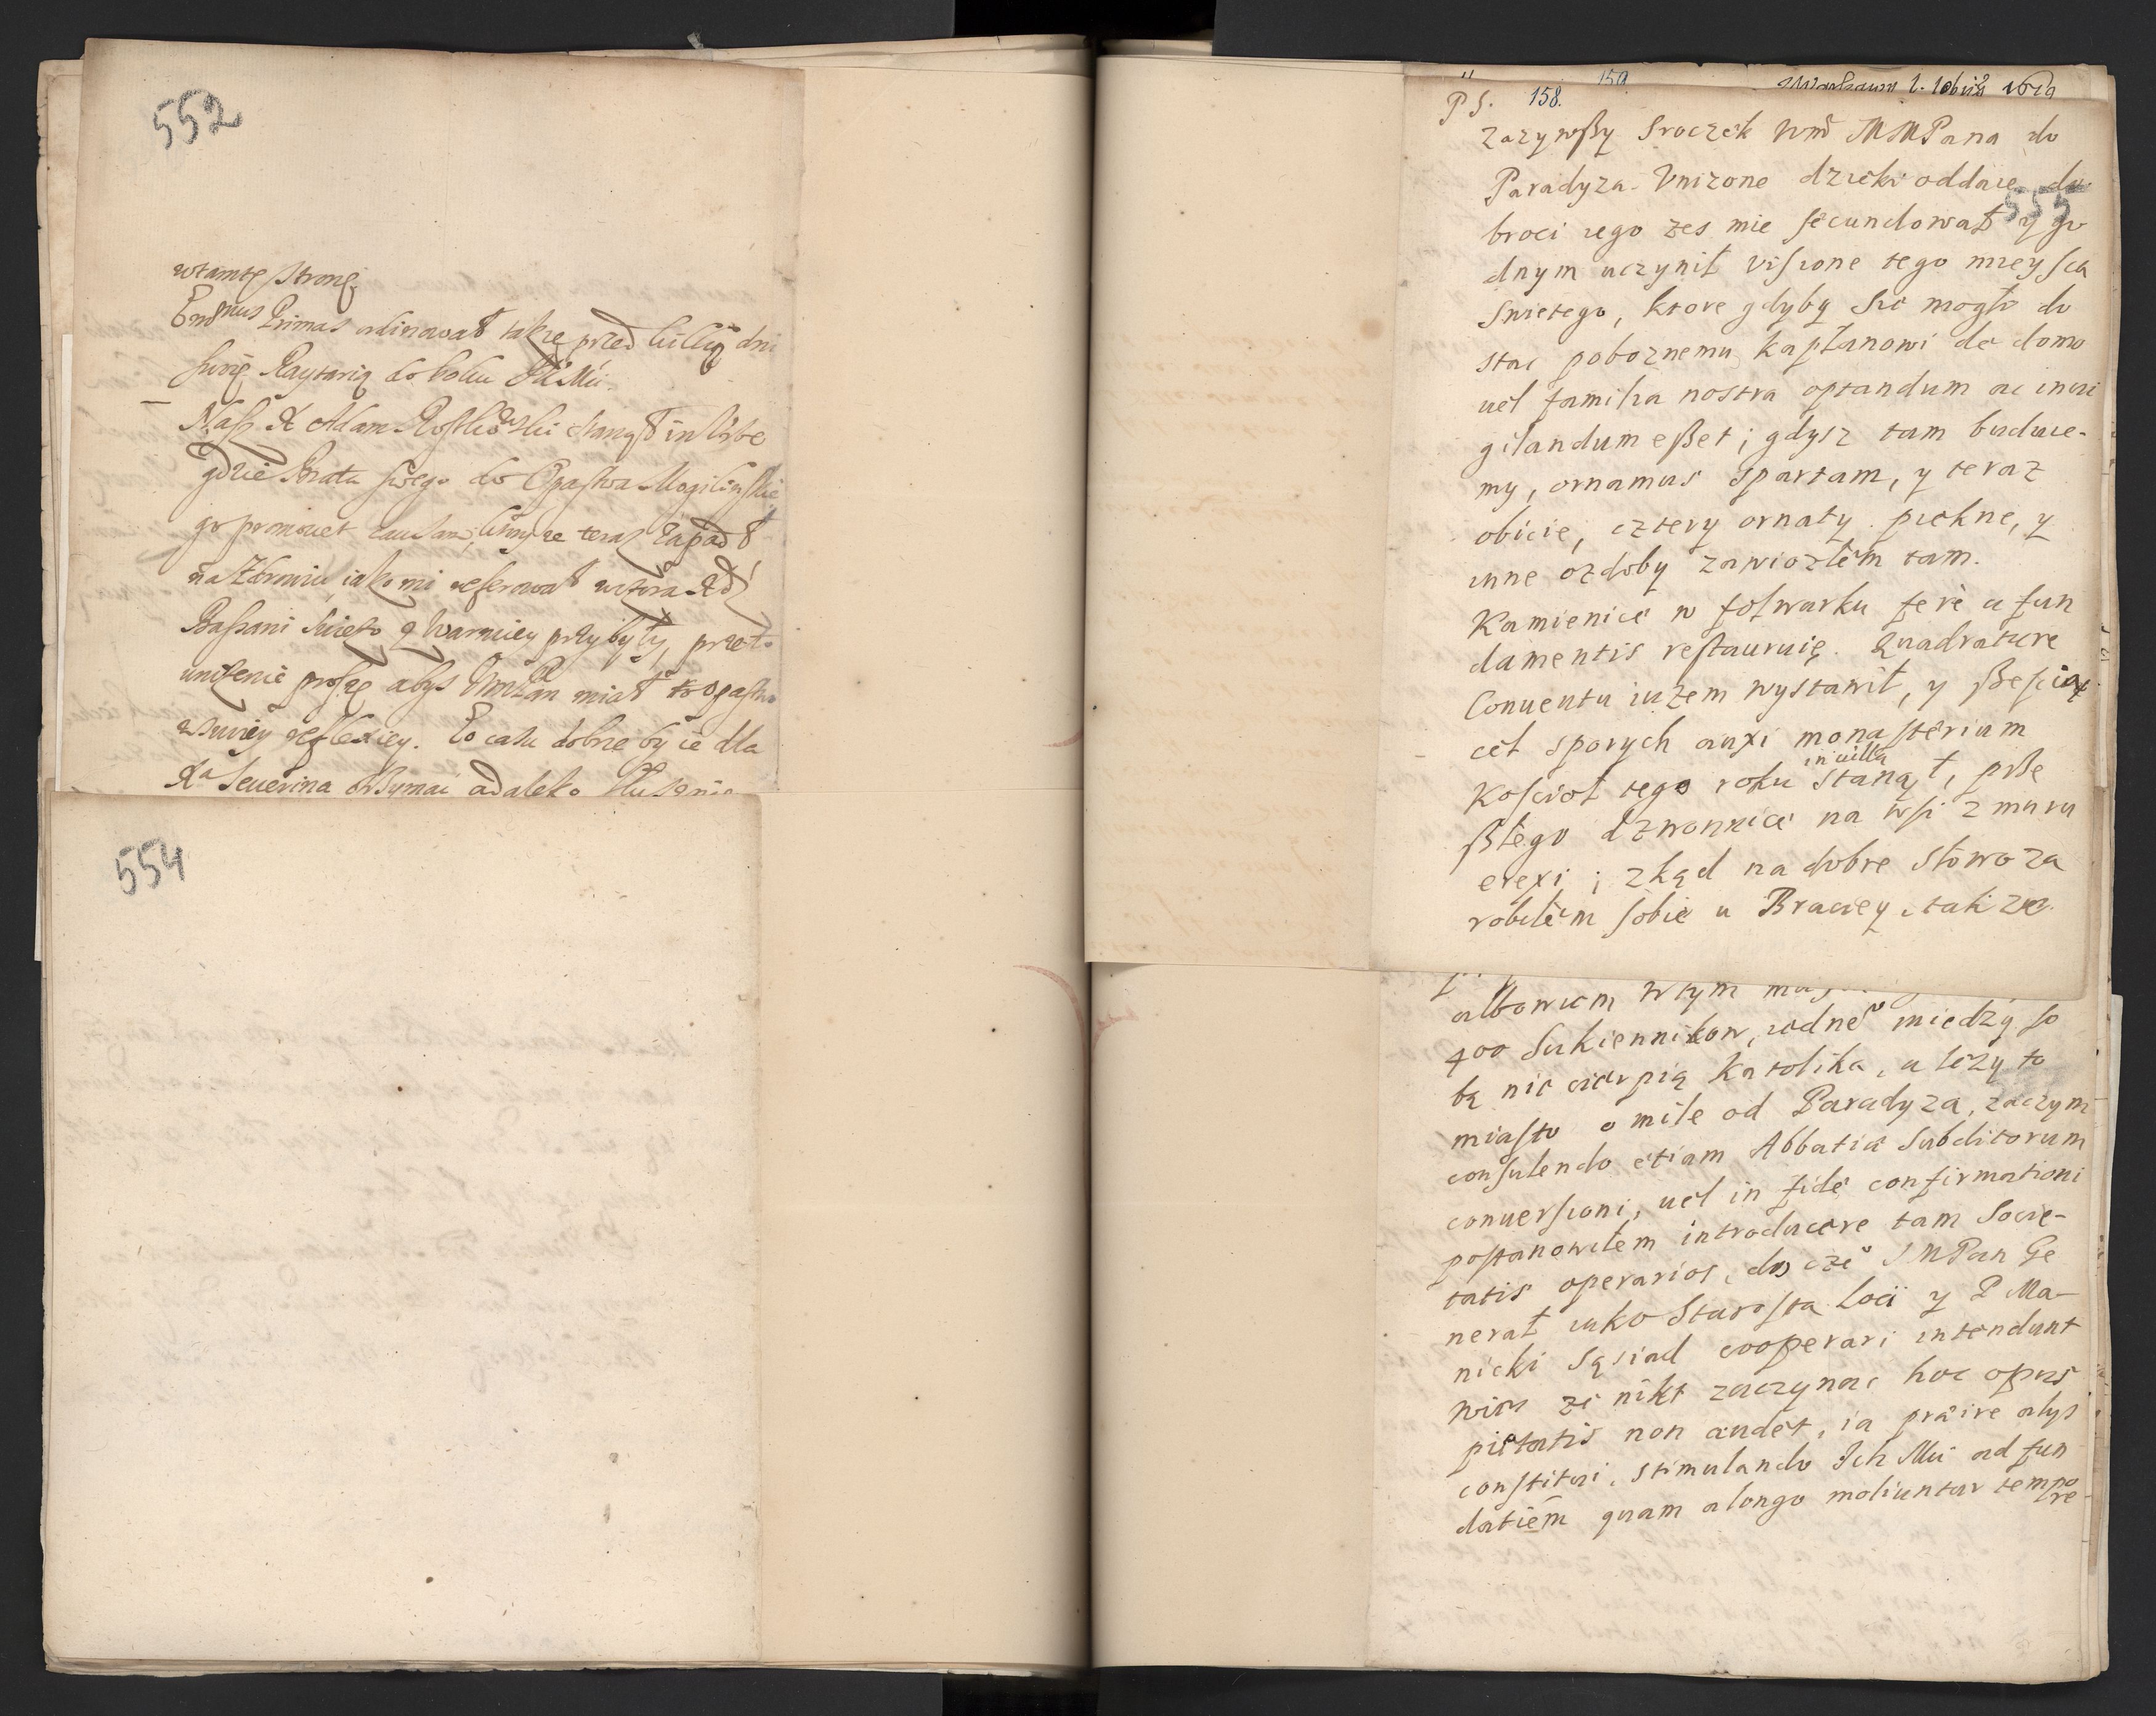 552
wtamtę stronę.
Em̅nus Primas ordinował także przed kilką dni
swoię Raytarią do boku JKMci.
Nasz X Adam stanął in Urbe
gdzie Brata swego do Opactwa Mogilinskie
go promouet teraz zapadł
na zdrowiu, iako mi referował wczora Xdz
Bassani swieżo z Warmiey przybyły, przeto
uniżenie proszę abys miał to opactwo
w swoiey reflexiey. Eo casu dobrze by ie dla
Xa Seuerina otrzymac
554
158.
159
Warszawy 1. 10bris
P S.
555
Zazywszy Sroczek Wm̅ MMPana do
Paradyza. Vnizone dzieki oddaie do
broci iego zes mie secundował y go
dnym uczynił visione tego mieysca
Swietego, ktore gdyby sie mogło do
stac poboznemu kapłanowi de domo
uel familia nostra optandum ac inui
gilandum eßet; gdysz tam buduie-
my, ornamus Spartam, y teraz
obicie, cztery ornaty piekne, y
inne ozdoby zawiozłem tam.
Kamienice w folwarku fere a fun
damentis restauruię. Quadrature
Conuentu iuzem wystawił, y ßescią
cel sporych auxi monasterium
in uilla
Koscioł tego roku stanął, prze
ßłego dzwonnice na wsi z muru
erexi; zkąd na dobre słowo za
robiłem sobie u Braciey, tak ze
albowiem w tym
400 Sukiennikow, iedne° miedzy so
bą nie cierpią Katolika, a lezy to
miasto o mile od Paradyza, zaczym
consulendo etiam Abbatiæ Subditorum
conuersioni, uel in fide confirmationi
postanowiłem introducere tam Socie-
tatis operarios, do cze° JMPan Ge
nerał iako Starosta loci y P Ma-
nicki Sąsiad cooperari intendunt
ze nikt zaczynac hoc opus
pietatis non audet, ia præire alijs
constitui, stimulando Ich Mci ad fun
datiem̅ quam a longo moliuntur tempo
re